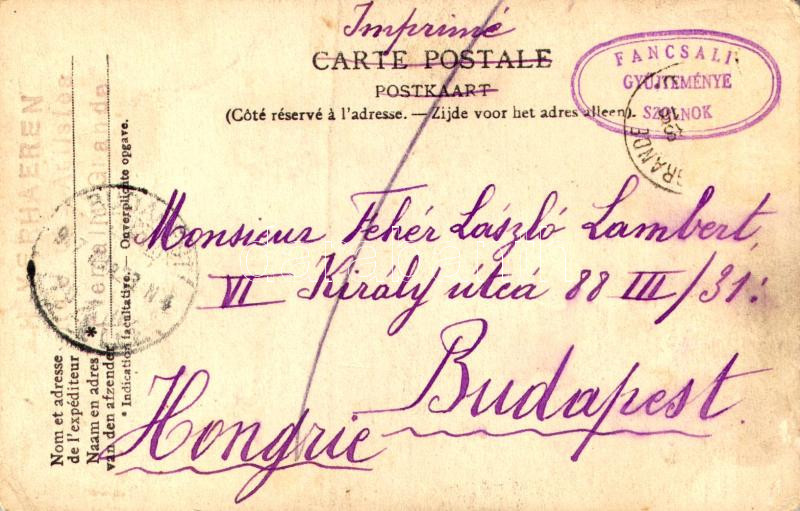 Imprimé
CARTE POSTALE
POSTKAART
(Côté réservé à l'adresse. — Zijde voor het adres alleen).
FANCSALI
GYŰJTEMÉNYE
SZOLNOK
Monsieur Fehér László Lambert,
VI Király útca 88 III/31.
Budapest.
Hongrie
Nom et adresse
de l'expéditeur
Naam en adres *
van den afzender
* Indication facultative. — Onverplichte opgave.
VERHAEREN
GRAND